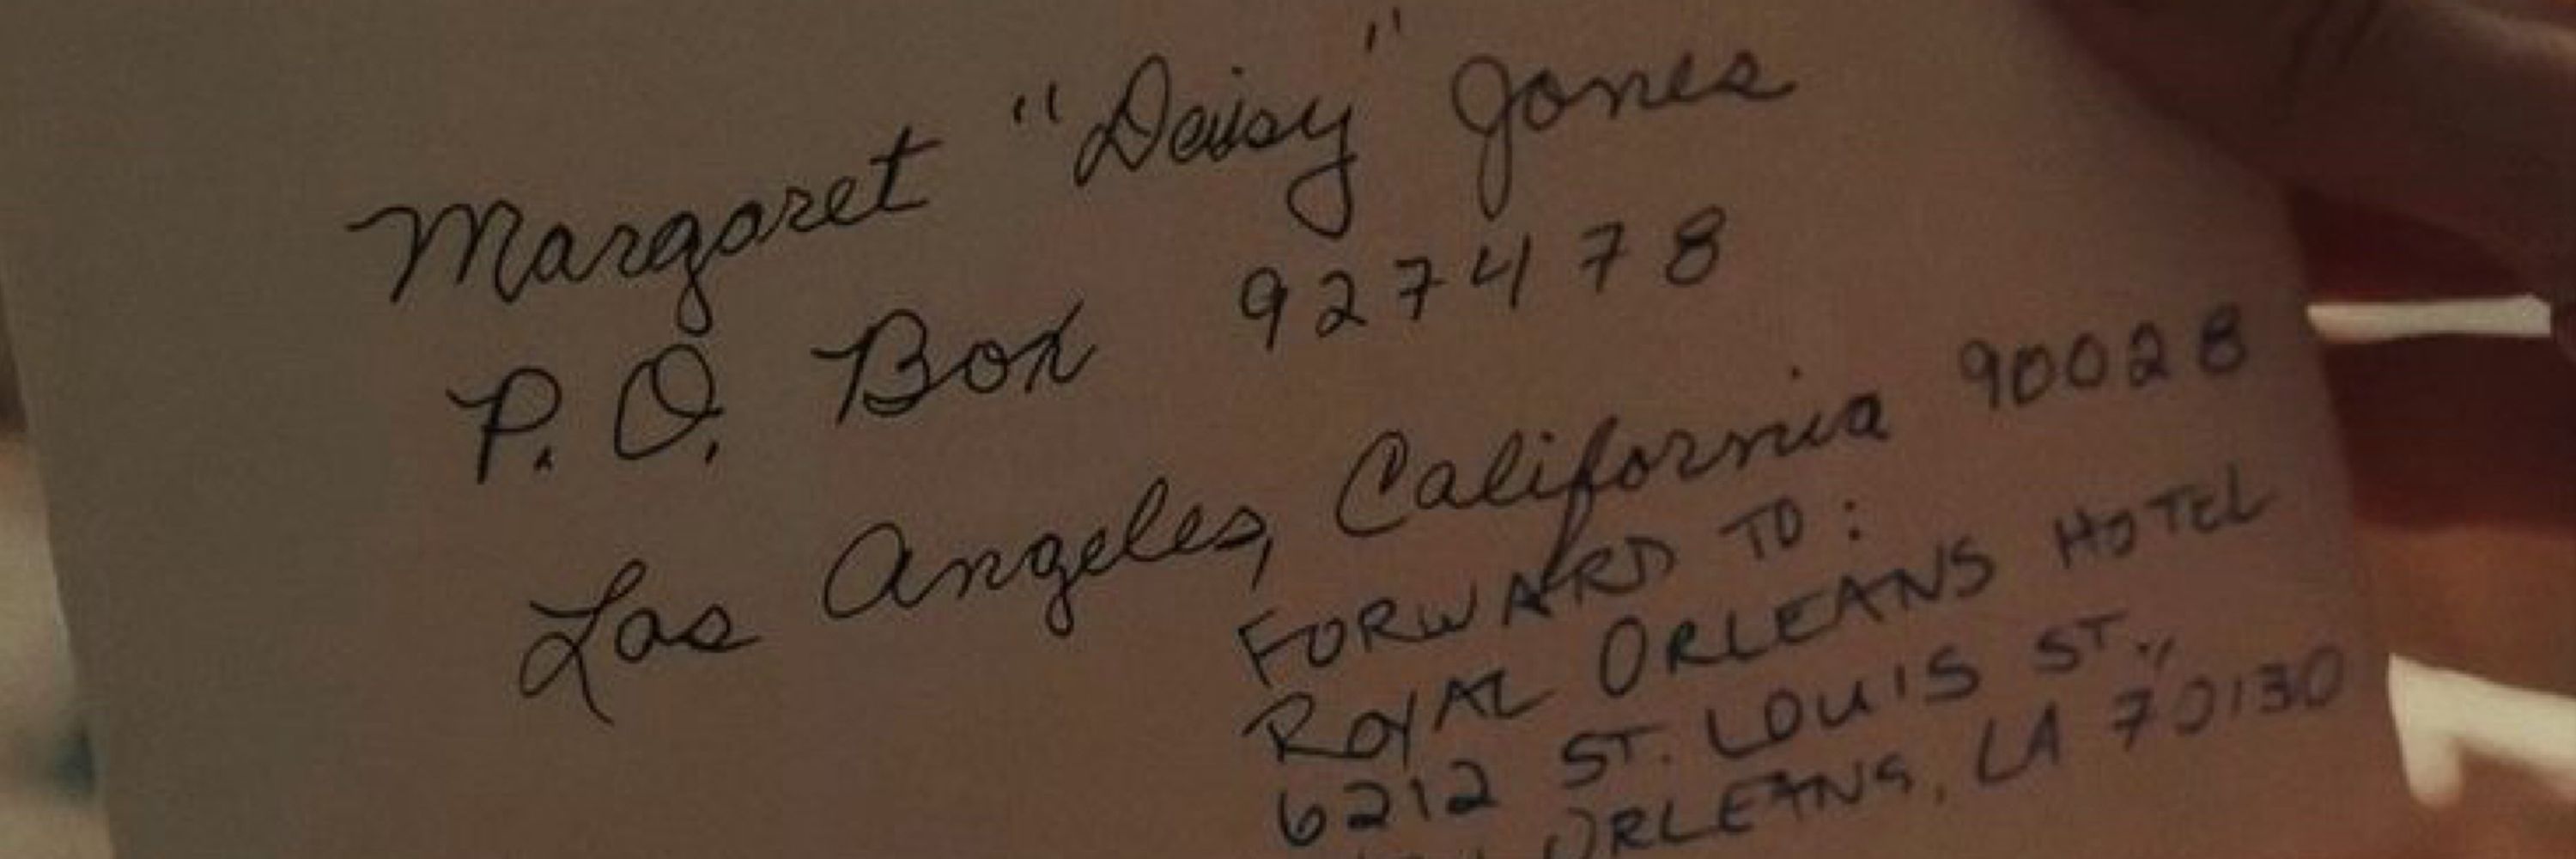 Margaret "Daisy" Jones
P.O. Box 927478
Los Angeles, California 90028
FORWARD TO:
ROYAL ORLEANS HOTEL
6212 ST. LOUIS ST.,
ORLEANS, LA 70130